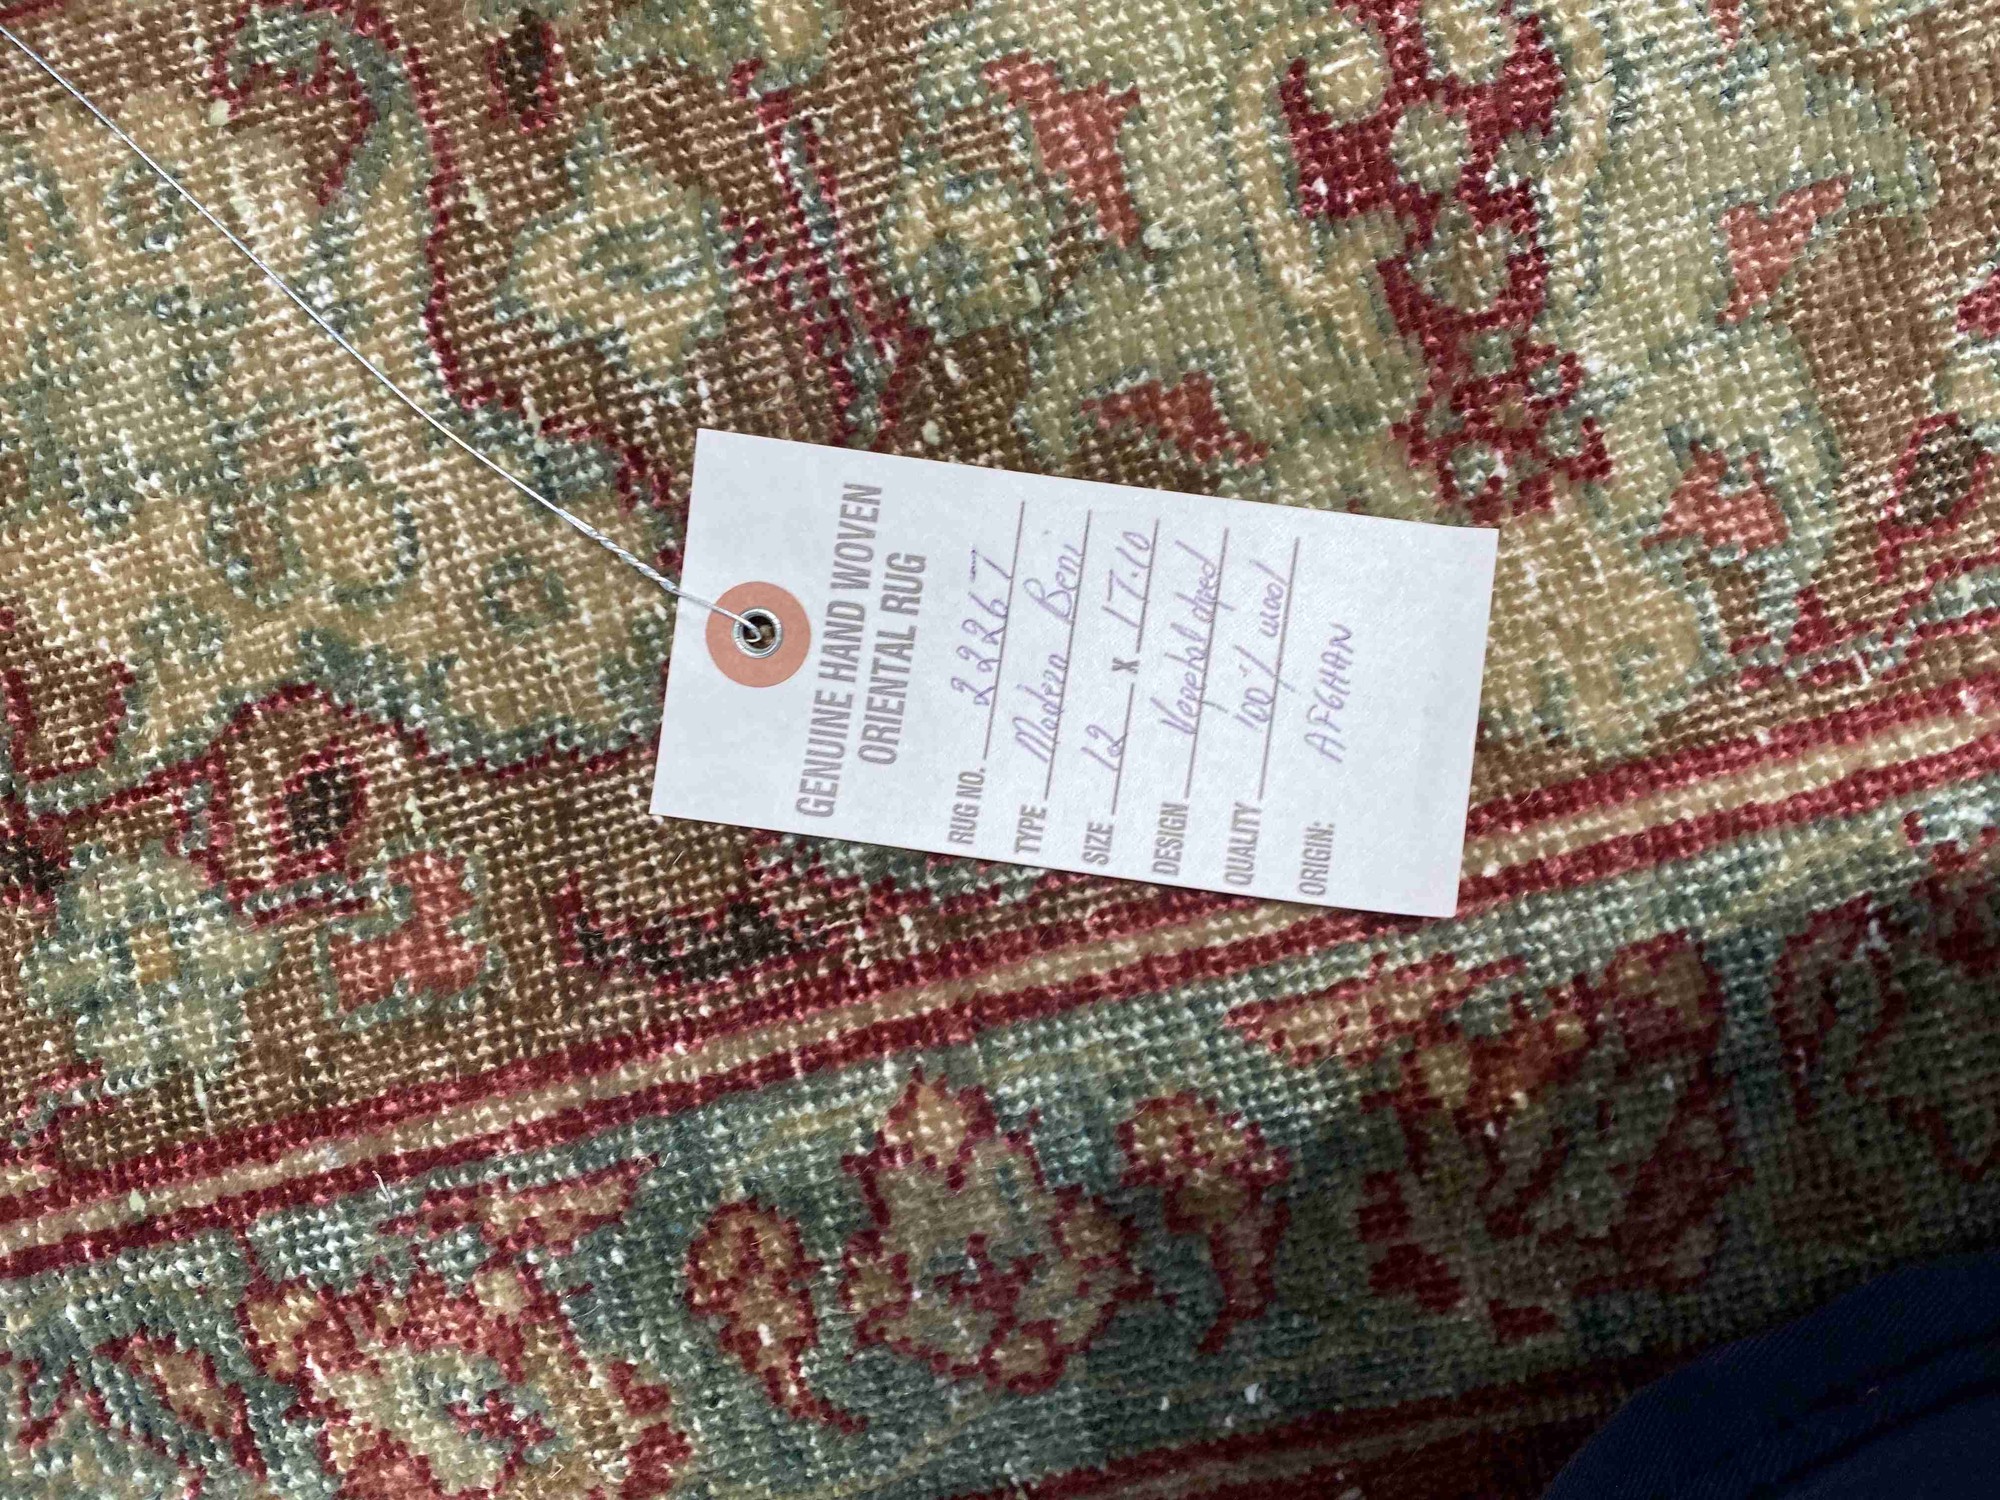 GENUINE HAND WOVEN
ORIENTAL RUG
RUG NO. 22267
TYPE Modern Beni
SIZE 12 X 17.10
DESIGN Vegetal dyed
QUALITY 100% wool
ORIGIN: AFGHAN